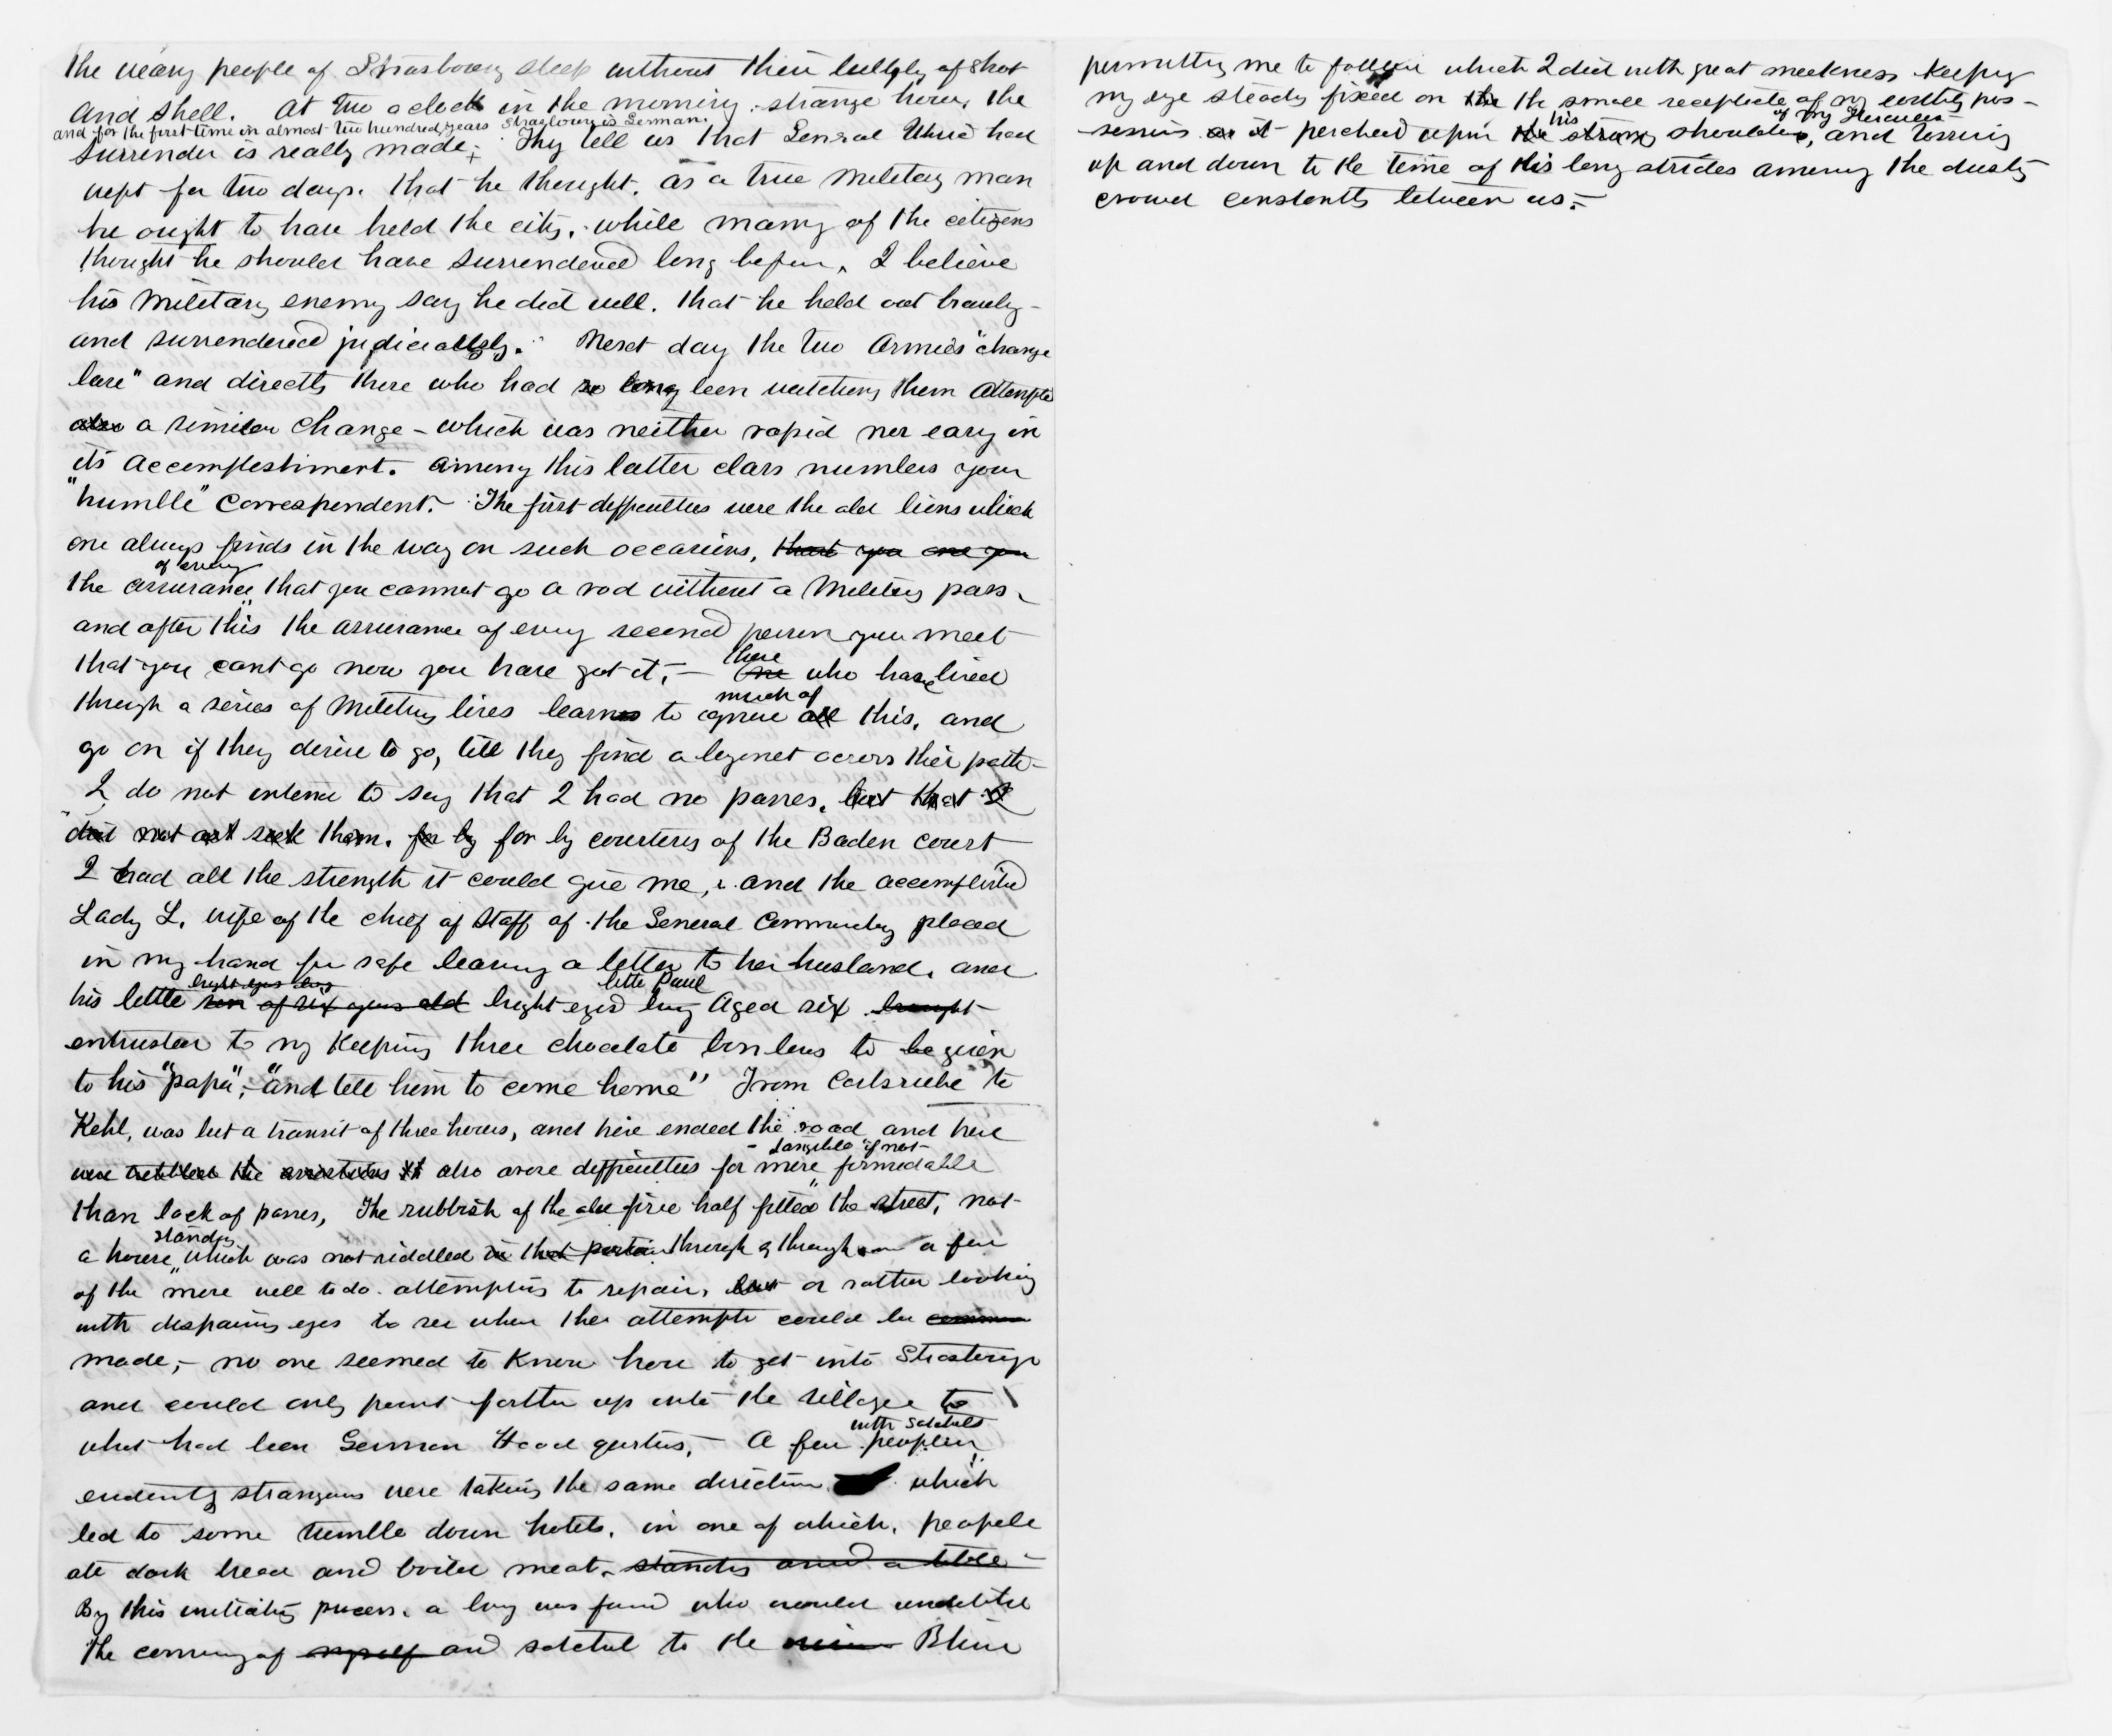 the weary people of Strasbourg sleep without their lullaby of shot
and shell. At two o clock in the morning, strange hour, the
and for the first time in almost two hundred years Strasbourg is German.
surrender is really made; They tell us that General Uhric had
wept for two days. that he thought, as a true military man
he ought to have held the city, while many of the citizens
thought he should have surrendered long before, I believe
his military enemy say he did well. that he held out bravely -
and surrendered judiciously. Next day the two Armies "change
base" and directly those who had so long been watching them attempted
also a similar change - which was neither rapid nor easy in
its accomplishment. Among this latter class numbers your
"humble" correspondent. - The first difficulties were the old lions which
one always finds in the way on such occasions, that you one you
of every
the assurance that you cannot go a rod without a military pass -
and after this the assurance of every second person you meet
that you cant go now you have got it, -
those
One who have lived
through a series of military lives learns to
much of
ignore all this, and
go on if they desire to go, till they find a bayonet across their path -
I do not intend to say that I had no passes, but that I
did not ask seek them. for by for by courtesy of the Baden court
I had all the strength it could give me, and the accomplished
Lady L. wife of the chief of Staff of the General Commanding placed
in my hand for safe bearing a letter to her husband, and
bright eyed boy little Paul
his little son of six years old bright eyed boy Aged six brought
entrusted to my keeping three chocolate bonbons to be given
to his "papa", - "and tell him to come home" From Carlsruhe to
Kehl, was but a transit of three hours, and here ended the road and here
- tangible if not
were the also arose difficulties far more formidable
than lack of passes, The rubbish of the fire half filled the street, not
standing
a house which was not riddled in that portion through & through a few
of the more well to do attempting to repair, but or rather looking
with despairing eyes to see where the attempt could be
made, - no one seemed to know how to get into Strasbourg
and could only point farther up into the village to
what had been German Head quarters, - A few people
with satchels
evidently strangers were taking the same direction which
led to some tumble down hotels, in one of which, people
ate dark bread and boiled meat, standing around a table -
By this process, a boy was found who would undertake
the conveying of myself and satchel to the Rhine
permitting me to follow which I did with great meekness keeping
my eye steady fixed on the the small receptacle of my earthly pos -
his of my Hercules
sessions as it perched upon the strong shoulders, and tossing
up and down to the time of his long strides among the dusty
crowd constantly between us. -